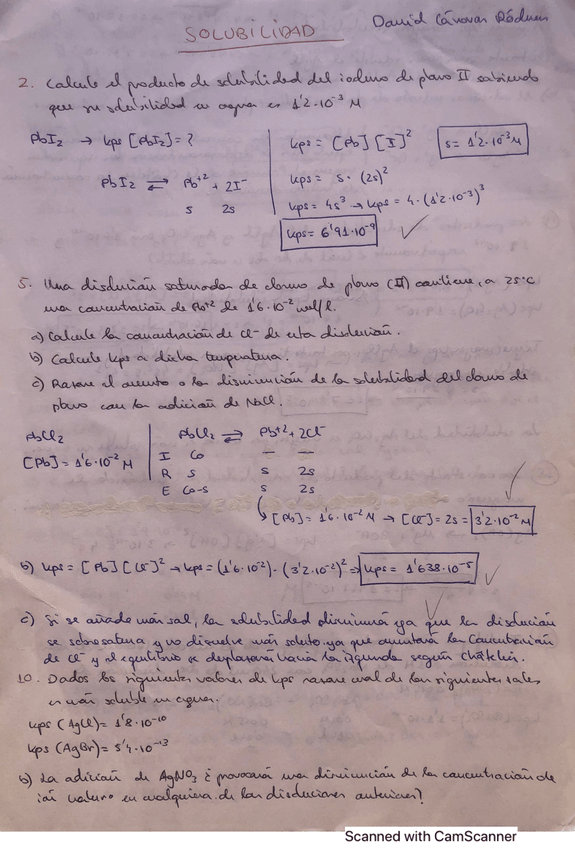 SOLUBILIDAD
2. Calcule el producto de solubilidad del ioduro de plomo II sabiendo
que su solubilidad en agua es 1'2·10⁻³ M
PbI₂ → Kps [PbI₂] = ?
PbI₂ ⇌ Pb⁺² + 2I⁻
s 2s
Kps = [Pb] [I]²
s = 1'2·10⁻³ M
Kps = s · (2s)²
Kps = 4s³ → Kps = 4 · (1'2·10⁻³)³
Kps = 6'91·10⁻⁹
5. Una disolución saturada de cloruro de plomo (II) contiene, a 25°C
una concentración de Pb⁺² de 1'6·10⁻² mol/l.
a) Calcule la concentración de Cl⁻ de esta disolución.
b) Calcule Kps a dicha temperatura.
c) Razone el aumento o la disminución de la solubilidad del cloruro de
plomo con la adición de NaCl.
PbCl₂
[Pb] = 1'6·10⁻² M
PbCl₂ ⇌ Pb⁺² + 2Cl⁻
I Co — —
R s s 2s
E Co-s s 2s
[Pb] = 1'6·10⁻² M → [Cl⁻] = 2s = 3'2·10⁻² M
b) Kps = [Pb] [Cl⁻]² → Kps = (1'6·10⁻²) · (3'2·10⁻²)² ⇒ Kps = 1'638·10⁻⁵
c) Si se añade más sal, la solubilidad disminuirá ya que la disolución
se sobresatura y no disuelve más soluto ya que aumentará la concentración
de Cl⁻ y el equilibrio se desplazará hacia la izquierda según
10. Dados los siguientes valores de Kps razone cual de las siguientes sales
es más soluble en agua.
Kps (AgCl) = 1'8·10⁻¹⁰
Kps (AgBr) = 5'4·10⁻¹³
b) La adición de AgNO₃ ¿provocará una disminución de la concentración de
ión haluro en cualquiera de las disoluciones anteriores?
Scanned with CamScanner